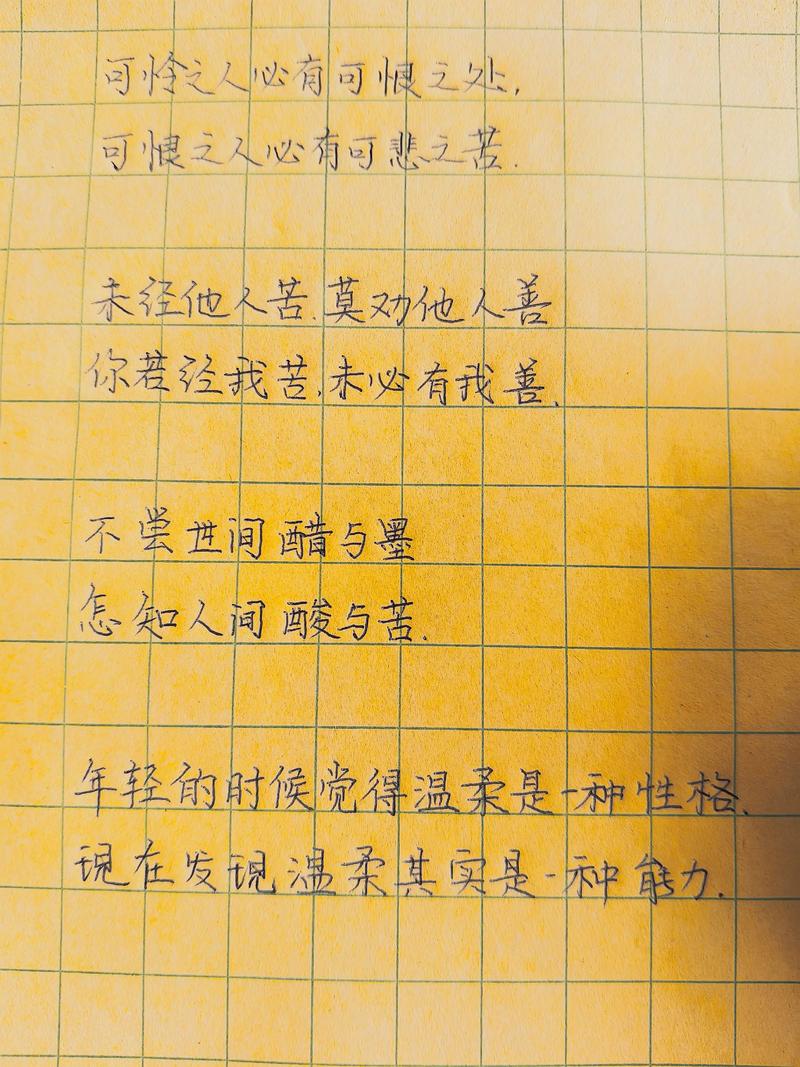 可怜之人必有可恨之处,
可恨之人必有可悲之苦.
未经他人苦.莫劝他人善
你若经我苦.未必有我善.
不尝世间醋与墨
怎知人间酸与苦.
年轻的时候觉得温柔是一种性格.
现在发现温柔其实是一种能力.